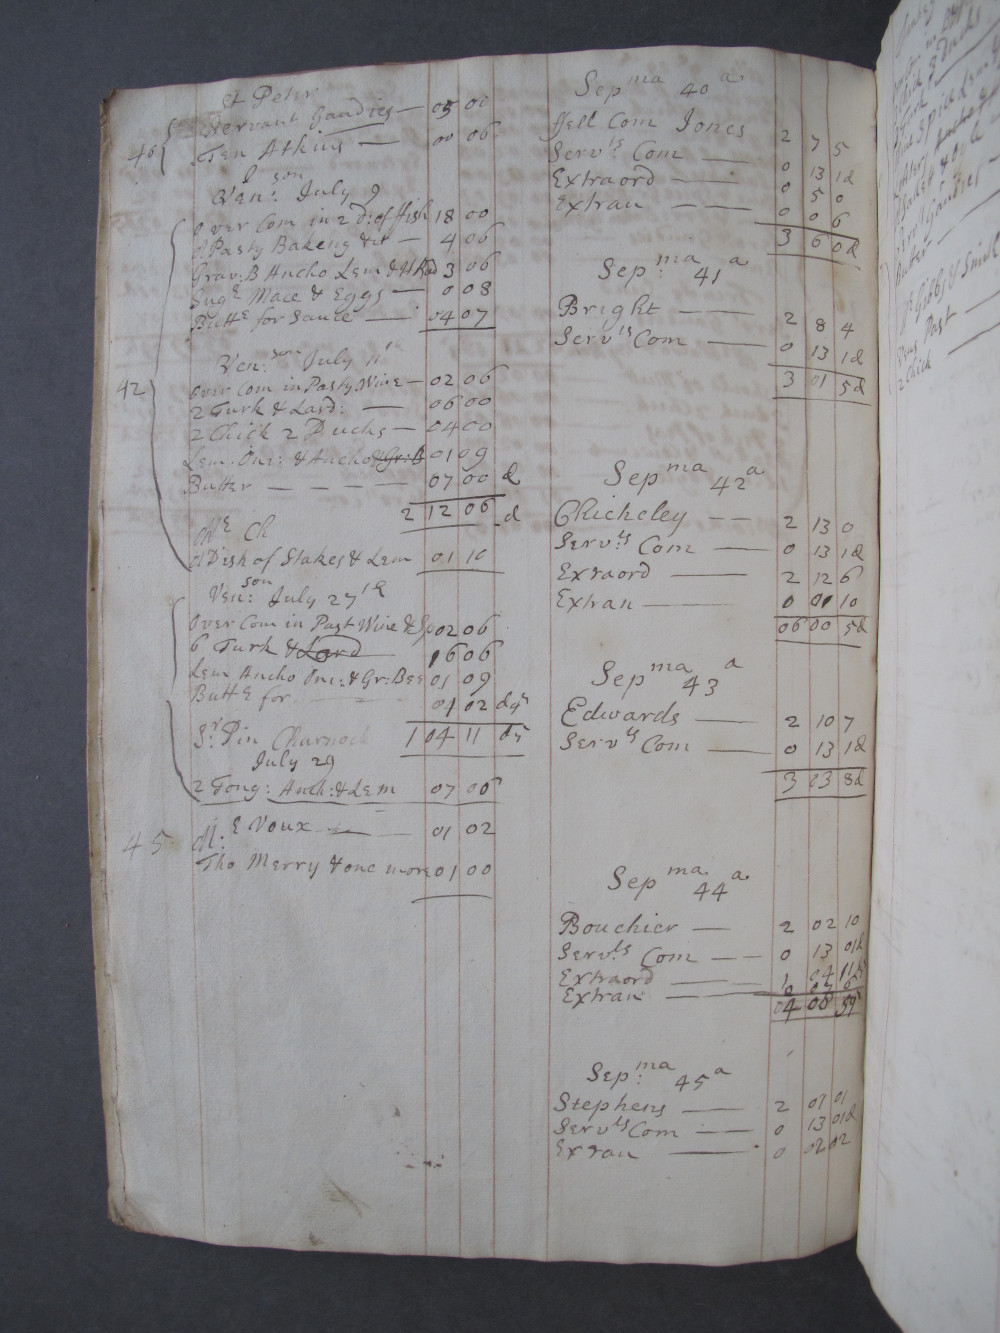 St Peter
Servant Gaudies — 05 00
40 Jen Atkins — 00 06
Ven:son July 9
Over Com in 2 D: of ffish 18 00
A Pasty Bakeng &c — 4 06
Grav: B Ancho Lem & 3 06
Sugr Mace & Eggs — 0 08
Butte for Sauce — 04 07
Ven:son July 11th
42 Over Com in Pasty Wine — 02 06
2 Turk & Lard: — 06 00
2 Chick 2 Ducks — 04 00
Lem. Oni: & Ancho & Gr: B 01 09
Butter — — — — 07 00 d
2 12 06 d
Ch
A Dish of Stakes & Lem 01 10
Ven:son July 27th
Over Com in Past Wine & Sp 02 06
6 Turk & Lard 16 06
Lem Ancho Oni: & Gr: Bee 01 09
Butte for 04 02 dq
Sr Pin Churnock 1 04 11 dq
July 29
2 Tong: Anch: & Lem 07 06
45 Mr: E Voux — 01 02
Tho Merry & one more 01 00
Sepma 40a
ffell Com Jones 2 7 5
Servts Com — 0 13 1d
Extraord — — 0 5 0
Extran — — 0 0 6
3 6 0d
Sep:ma 41a
Bright — — 2 8 4
Servts Com — 0 13 1d
3 01 5d
Sepma 42a
Chicheley — 2 13 0
Servts Com — 0 13 1d
Extraord — 2 12 6
Extran — 0 01 10
06 00 5d
Sepma 43a
Edwards — 2 10 7
Servts Com — 0 13 1d
3 03 8d
Sepma 44a
Bouchier — 2 02 10
Servts Com — — 0 13 01d
Extraord — — 1 04 11
Extran — — 0 07 6
04 08
Sep:ma 45a
Stephens — 2 07 01
Servts Com — — 0 13 01d
Extran — 0 02 02
Butter
Past
2 Chick